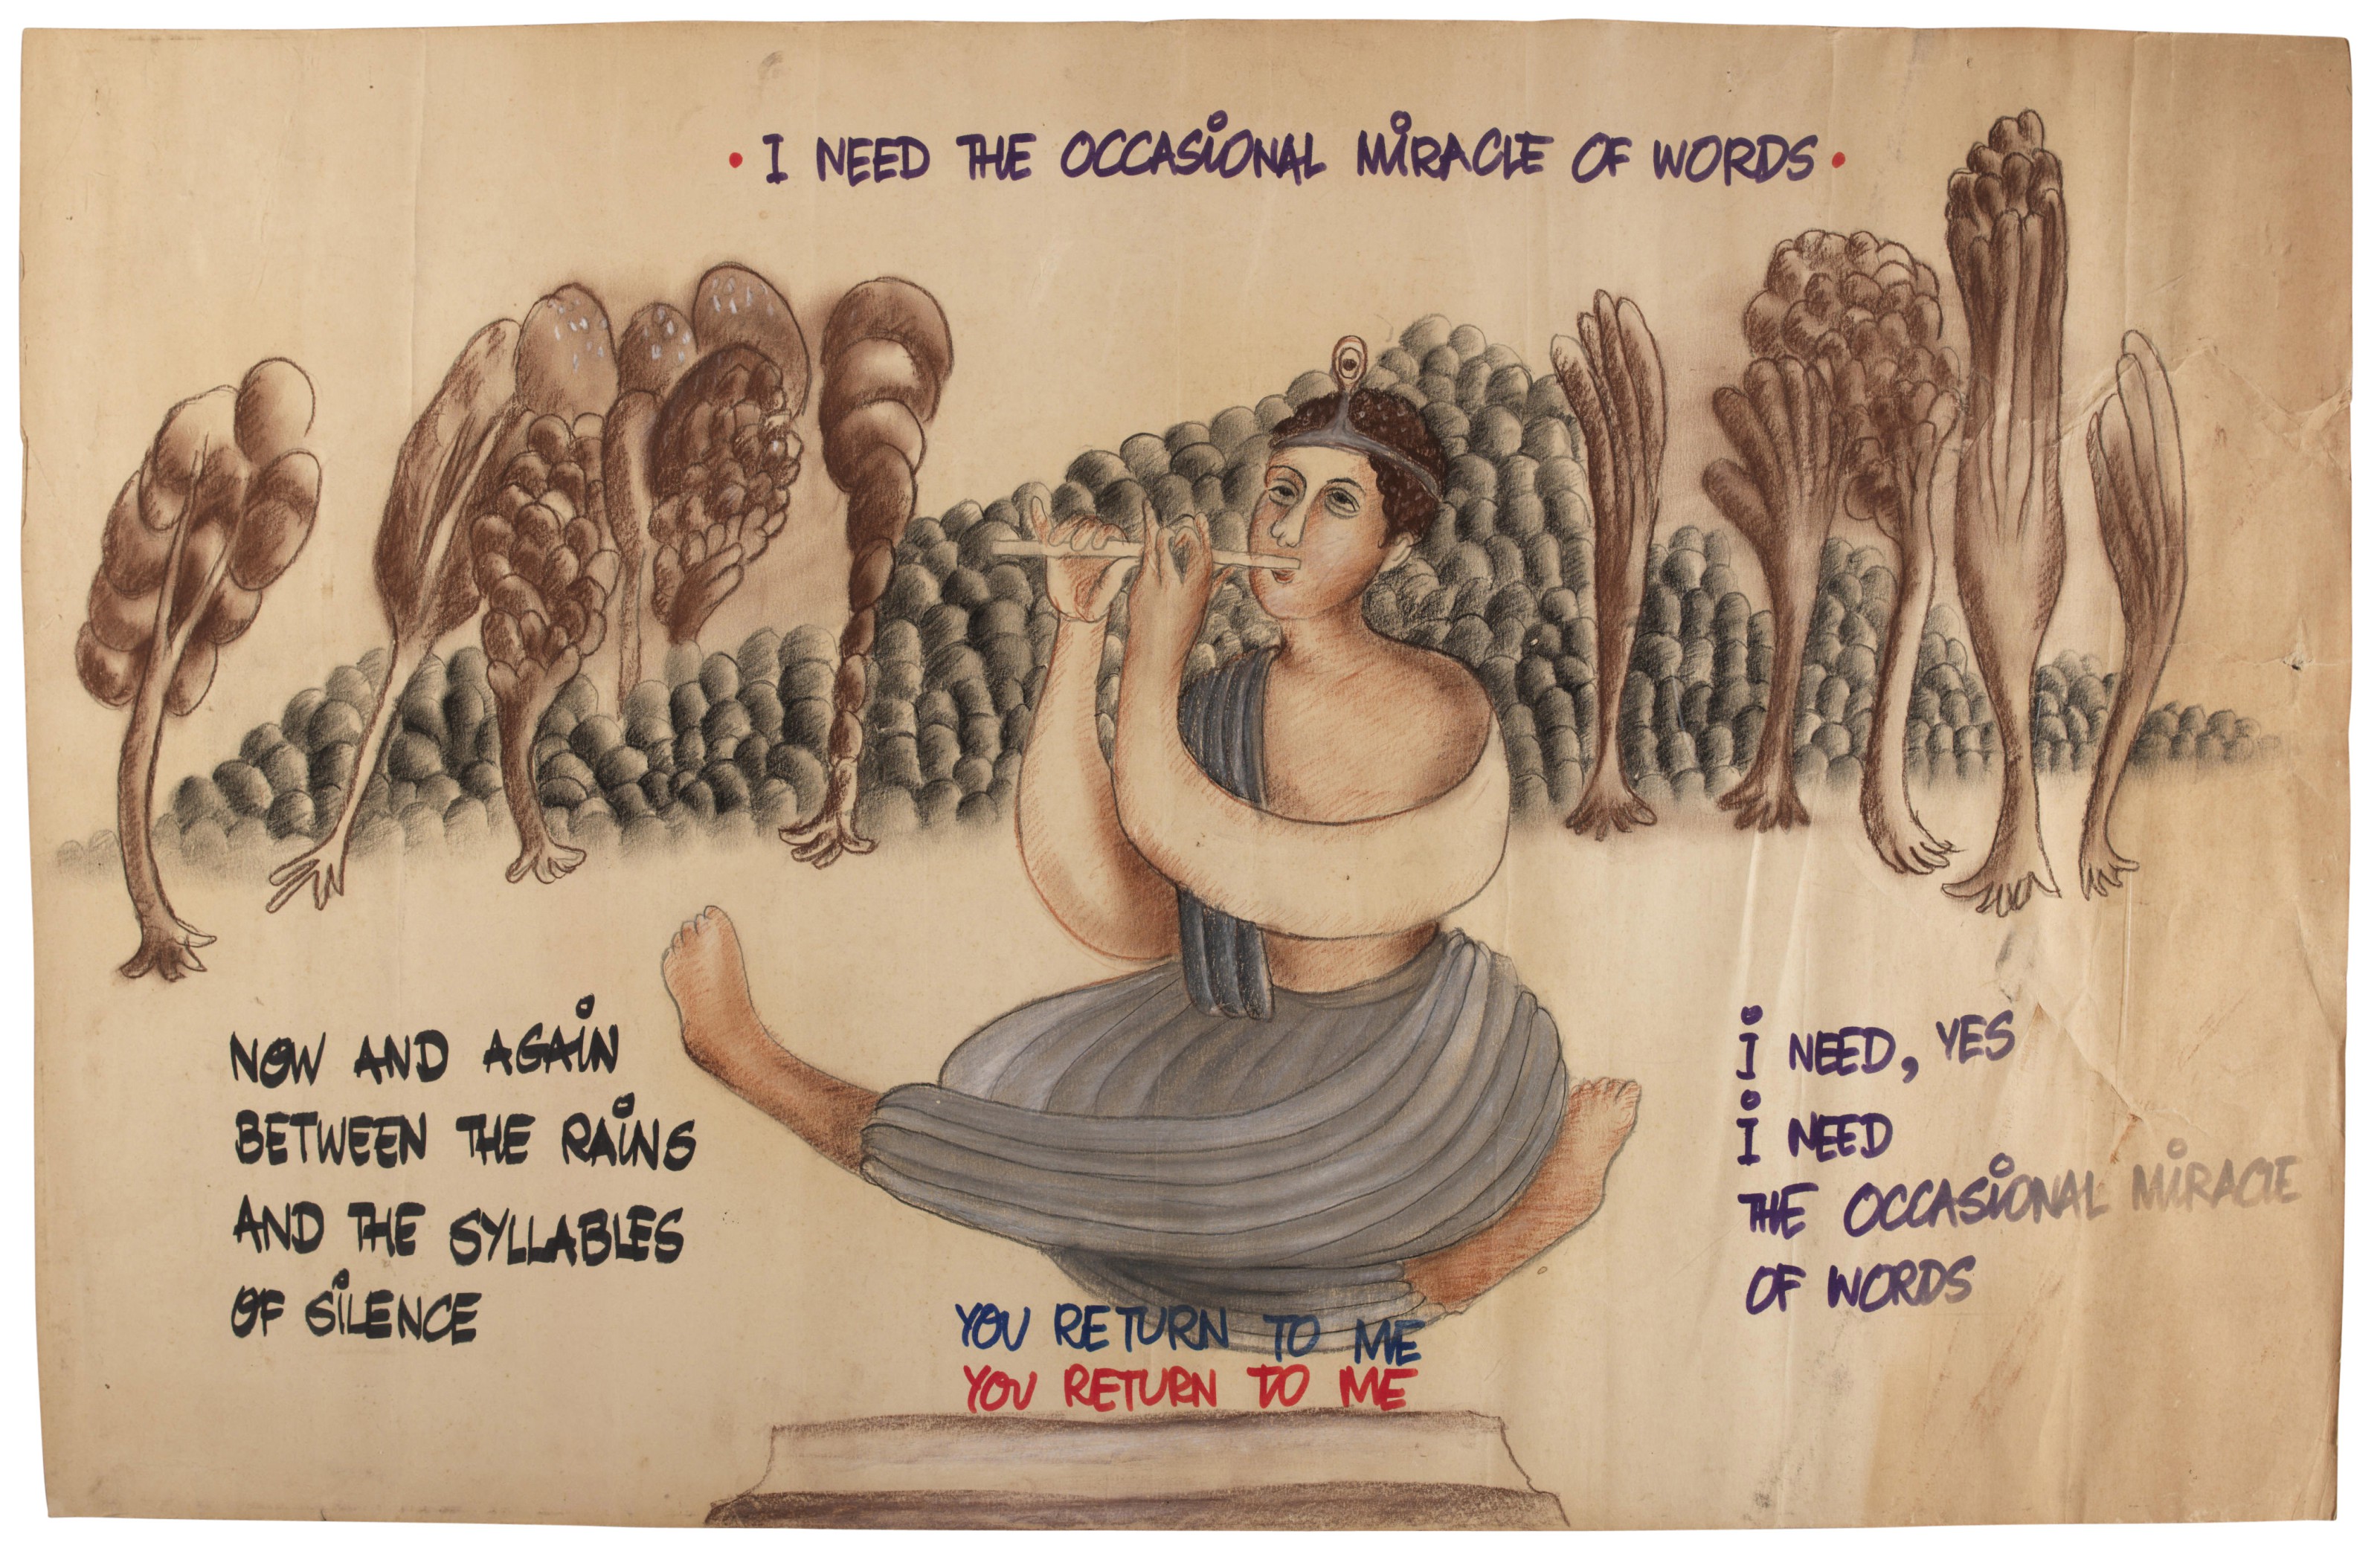 • I NEED THE OCCASIONAL MIRACLE OF WORDS •
NOW AND AGAIN
BETWEEN THE RAINS
AND THE SYLLABLES
OF SILENCE
YOU RETURN TO ME
YOU RETURN TO ME
I NEED, YES
I NEED
THE OCCASIONAL MIRACLE
OF WORDS